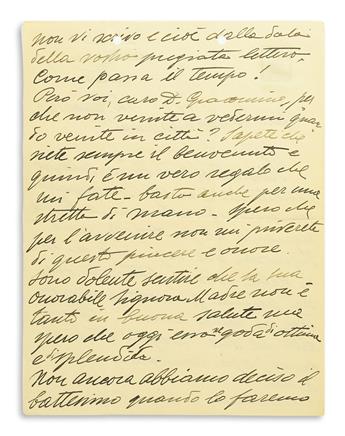 non vi scrivo e cioè dalla data
della vostra pregiata lettera,
Come passa il tempo!
Però voi, caro D. Giacomino, per
che non venite a vedermi quan
do venite in città? Sapete che
siete sempre il benvenuto e
quindi, è un vero regalo che
mi fate - basta anche per una
stretta di mano - Spero che
per l'avvenire non mi priverete
di questo piacere e onore.
Sono dolente sentire che la sua
onorabile Signora Madre non è
tanto in buona salute ma
spero che oggi essa ne goda di ottima
e splendida.
Non ancora abbiamo deciso il
battesimo quando lo faremo